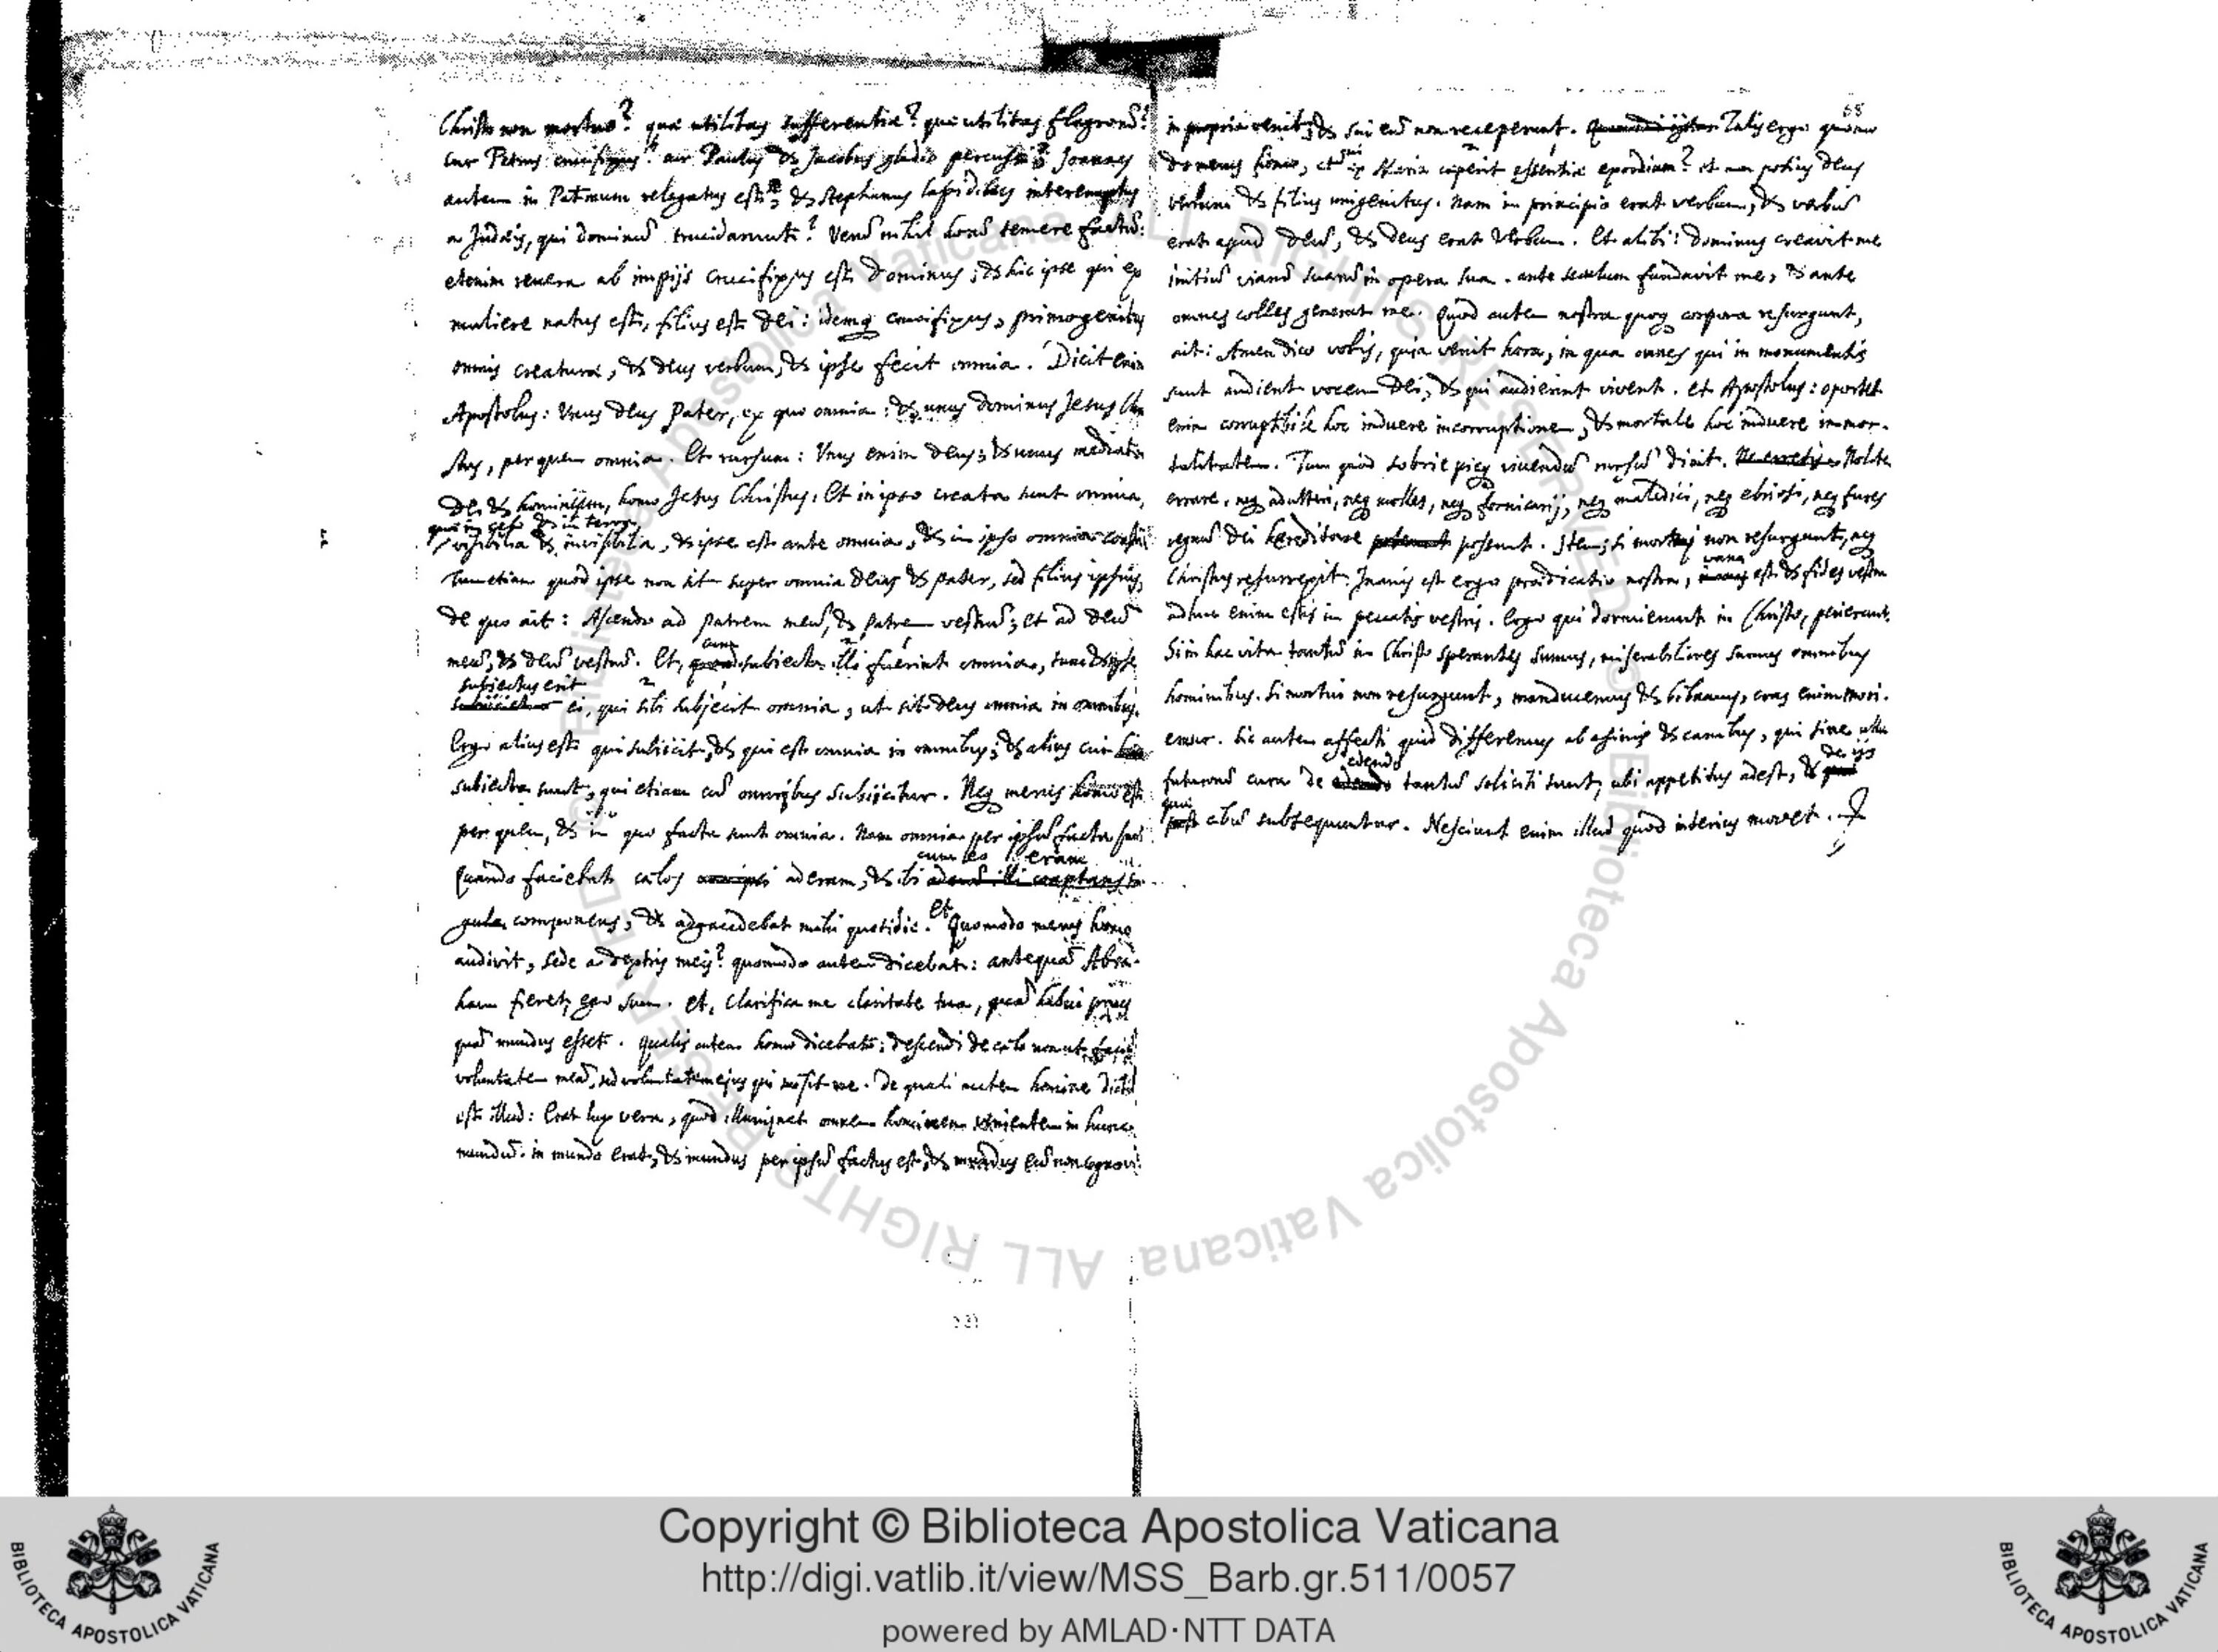 Christo non mortuo? quæ utilitas sufferentiæ? quæ utilitas flagrorū?
cur Petrus crucifixus? cur Paulus & Jacobus gladio percussi? Joannes
autem in Patmum relegatus est? & Stephanus lapidibus interemptus
a Judæis, qui dominū trucidarunt? Verū nihil horū temere factū:
etenim revera ab impijs crucifixus est Dominus; & hic ipse qui ex
muliere natus est, filius est Dei: idemq crucifixus, primogenitus
omnis creaturæ, & deus verbum, & ipse fecit omnia. Dicit enim
Apostolus: Unus deus Pater, ex quo omnia: & unus dominus Jesus Chri
stus, per quem omnia. Et rursum: Unus enim deus; & unus mediator
Dei & hominum, homo Jesus Christus. Et in ipso creata sunt omnia,
quæ in cælo & in terra,
visibilia & invisibilia, & ipse est ante omnia, & in ipso omnia
Tum etiam quod ipse non sit super omnia deus & pater, sed filius ipsius,
de quo ait: Ascendo ad patrem meū, & patrem vestrū; et ad deū
cum
meū, & deū vestrū. Et, subiecta illi fuerint omnia, tunc & ipse
subiectus erit
ei, qui sibi subjecit omnia, ut sit deus omnia in omnibus.
Ergo alius est qui subiicit, & qui est omnia in omnibus; & alius cui
subiecta sunt, qui etiam cū omnibus subijcitur. Neq merus homo est
per quem, & in quo facta sunt omnia. Nam omnia per ipsū facta sunt
cum eo eram
Quando faciebat cælos aderam, & ibi
gula componens, & adgaudebat mihi quotidie. Et Quomodo merus homo
audivit, sede a dextris meis? quomodo autem dicebat: antequā Abra-
ham fieret, ego sum. et, clarifica me claritate tua, quā habui prius
quā mundus esset. qualis autem homo dicebat: descendi de cælo non ut faciā
voluntatem meā, sed voluntatem ejus qui misit me. De quali autem homine dictū
est illud: Erat lux vera, quæ illuminat omnem hominem venientem in hunc
mundū. in mundo erat, & mundus per ipsū factus est, & mundus eū non cognovit.
58
in propria venit, & sui eū non receperunt. Talis ergo quomo
do merus homo, et qui ex Maria ceperit essentiæ exordium? et non potius deus
verbum & filius unigenitus. Nam in principio erat verbum, & verbū
erat apud deū, & deus erat Verbum. Et alibi: dominus creavit me
initiū viarū suarū in opera sua. ante seculum fundavit me, & ante
omnes colles generat me. Quod autem nostra quoq corpora resurgunt,
ait: Amen dico vobis, quia venit hora, in qua omnes qui in monumentis
sunt audient vocem Dei, & qui audierint vivent. et Apostolus: oportet
enim corruptibile hoc induere incorruptionem, & mortale hoc induere immor-
talitatem. Tum quod sobrie pieq vivendū rursus dicit. Nolite
errare. neq adulteri, neq molles, neq fornicarij, neq maledici, neq ebriosi, neq fures
regnū Dei hereditare possunt. Item; si mortui non resurgunt, neq
vana
Christus resurrexit. Inanis est ergo prædicatio nostra, est & fides vestra
adhuc enim estis in peccatis vestris. Ergo qui dormierunt in Christo, perierunt.
Si in hac vita tantū in Christo sperantes sumus, miserabiliores sumus omnibus
hominibus. Si mortui non resurgunt, manducemus & bibamus, cras enim mori-
emur. Sic autem affecti quid differemus ab asinis & canibus, qui sine ulla
edendo de ijs
futurorū cura de tantū soliciti sunt, ubi appetitus adest, &
quæ
cibū subsequuntur. Nesciunt enim illud quod interius movet.
Copyright © Biblioteca Apostolica Vaticana
http://digi.vatlib.it/view/MSS_Barb.gr.511/0057
powered by AMLAD·NTT DATA
BIBLIOTECA APOSTOLICA VATICANA
BIBLIOTECA APOSTOLICA VATICANA